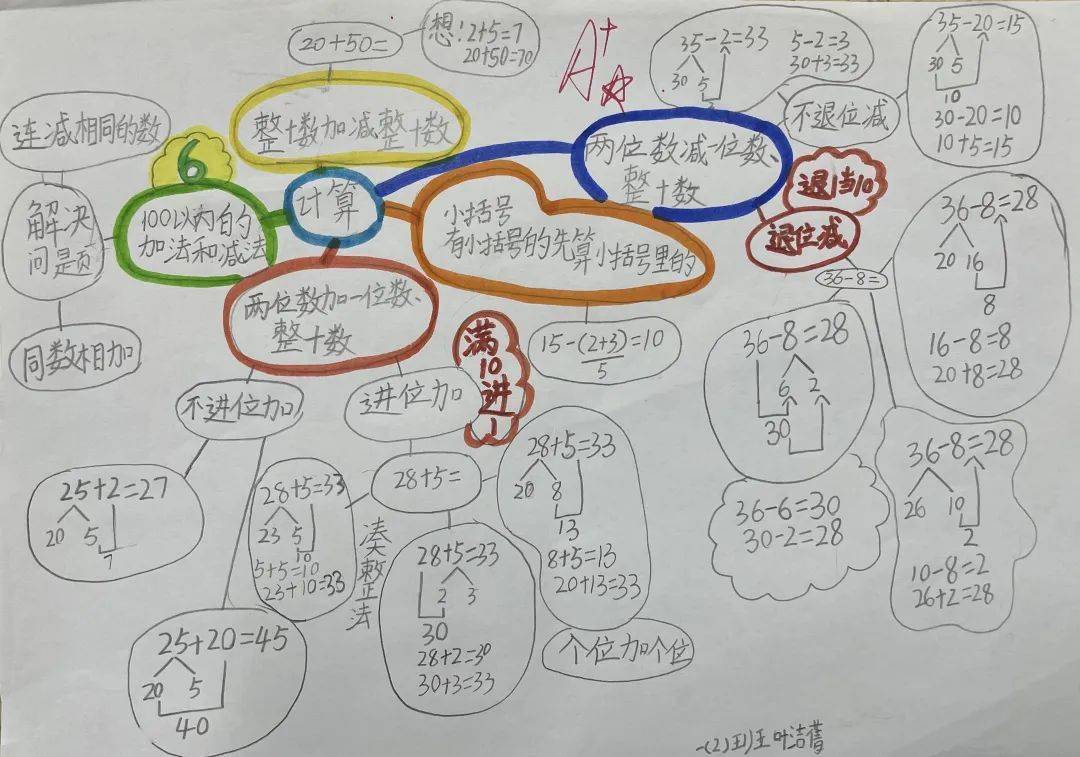 20+50=
想:2+5=7
20+50=70
A+
35-2=33
30 5
3
5-2=3
30+3=33
35-20=15
30 5
10
30-20=10
10+5=15
不退位减
连减相同的数
整十数加减整十数
两位数减一位数、
整十数
退1当10
退位减
6
计算
100以内的
加法和减法
解决
问是页
小括号
有小括号的先算小括号里的
36-8=28
20 16
8
16-8=8
20+8=28
36-8=
两位数加一位数、
整十数
同数相加
满10进1
15-(2+3)=10
5
36-8=28
6 2
30
36-6=30
30-2=28
不进位加
进位加
25+2=27
20 5
7
28+5=33
23 5
10
5+5=10
23+10=33
凑整法
28+5=
28+5=33
20 8
13
8+5=13
20+13=33
个位加个位
28+5=33
2 3
30
28+2=30
30+3=33
36-8=28
26 10
2
10-8=2
26+2=28
25+20=45
20 5
40
一(2)王)王 叶洁